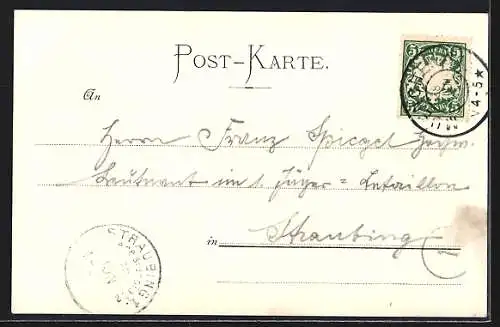 POST-KARTE.
An
Herrn Franz Spiegel
Leutnant im 1. Jäger = Bataillon
in Straubing
STRAUBING
V 4-5★
5 5
1